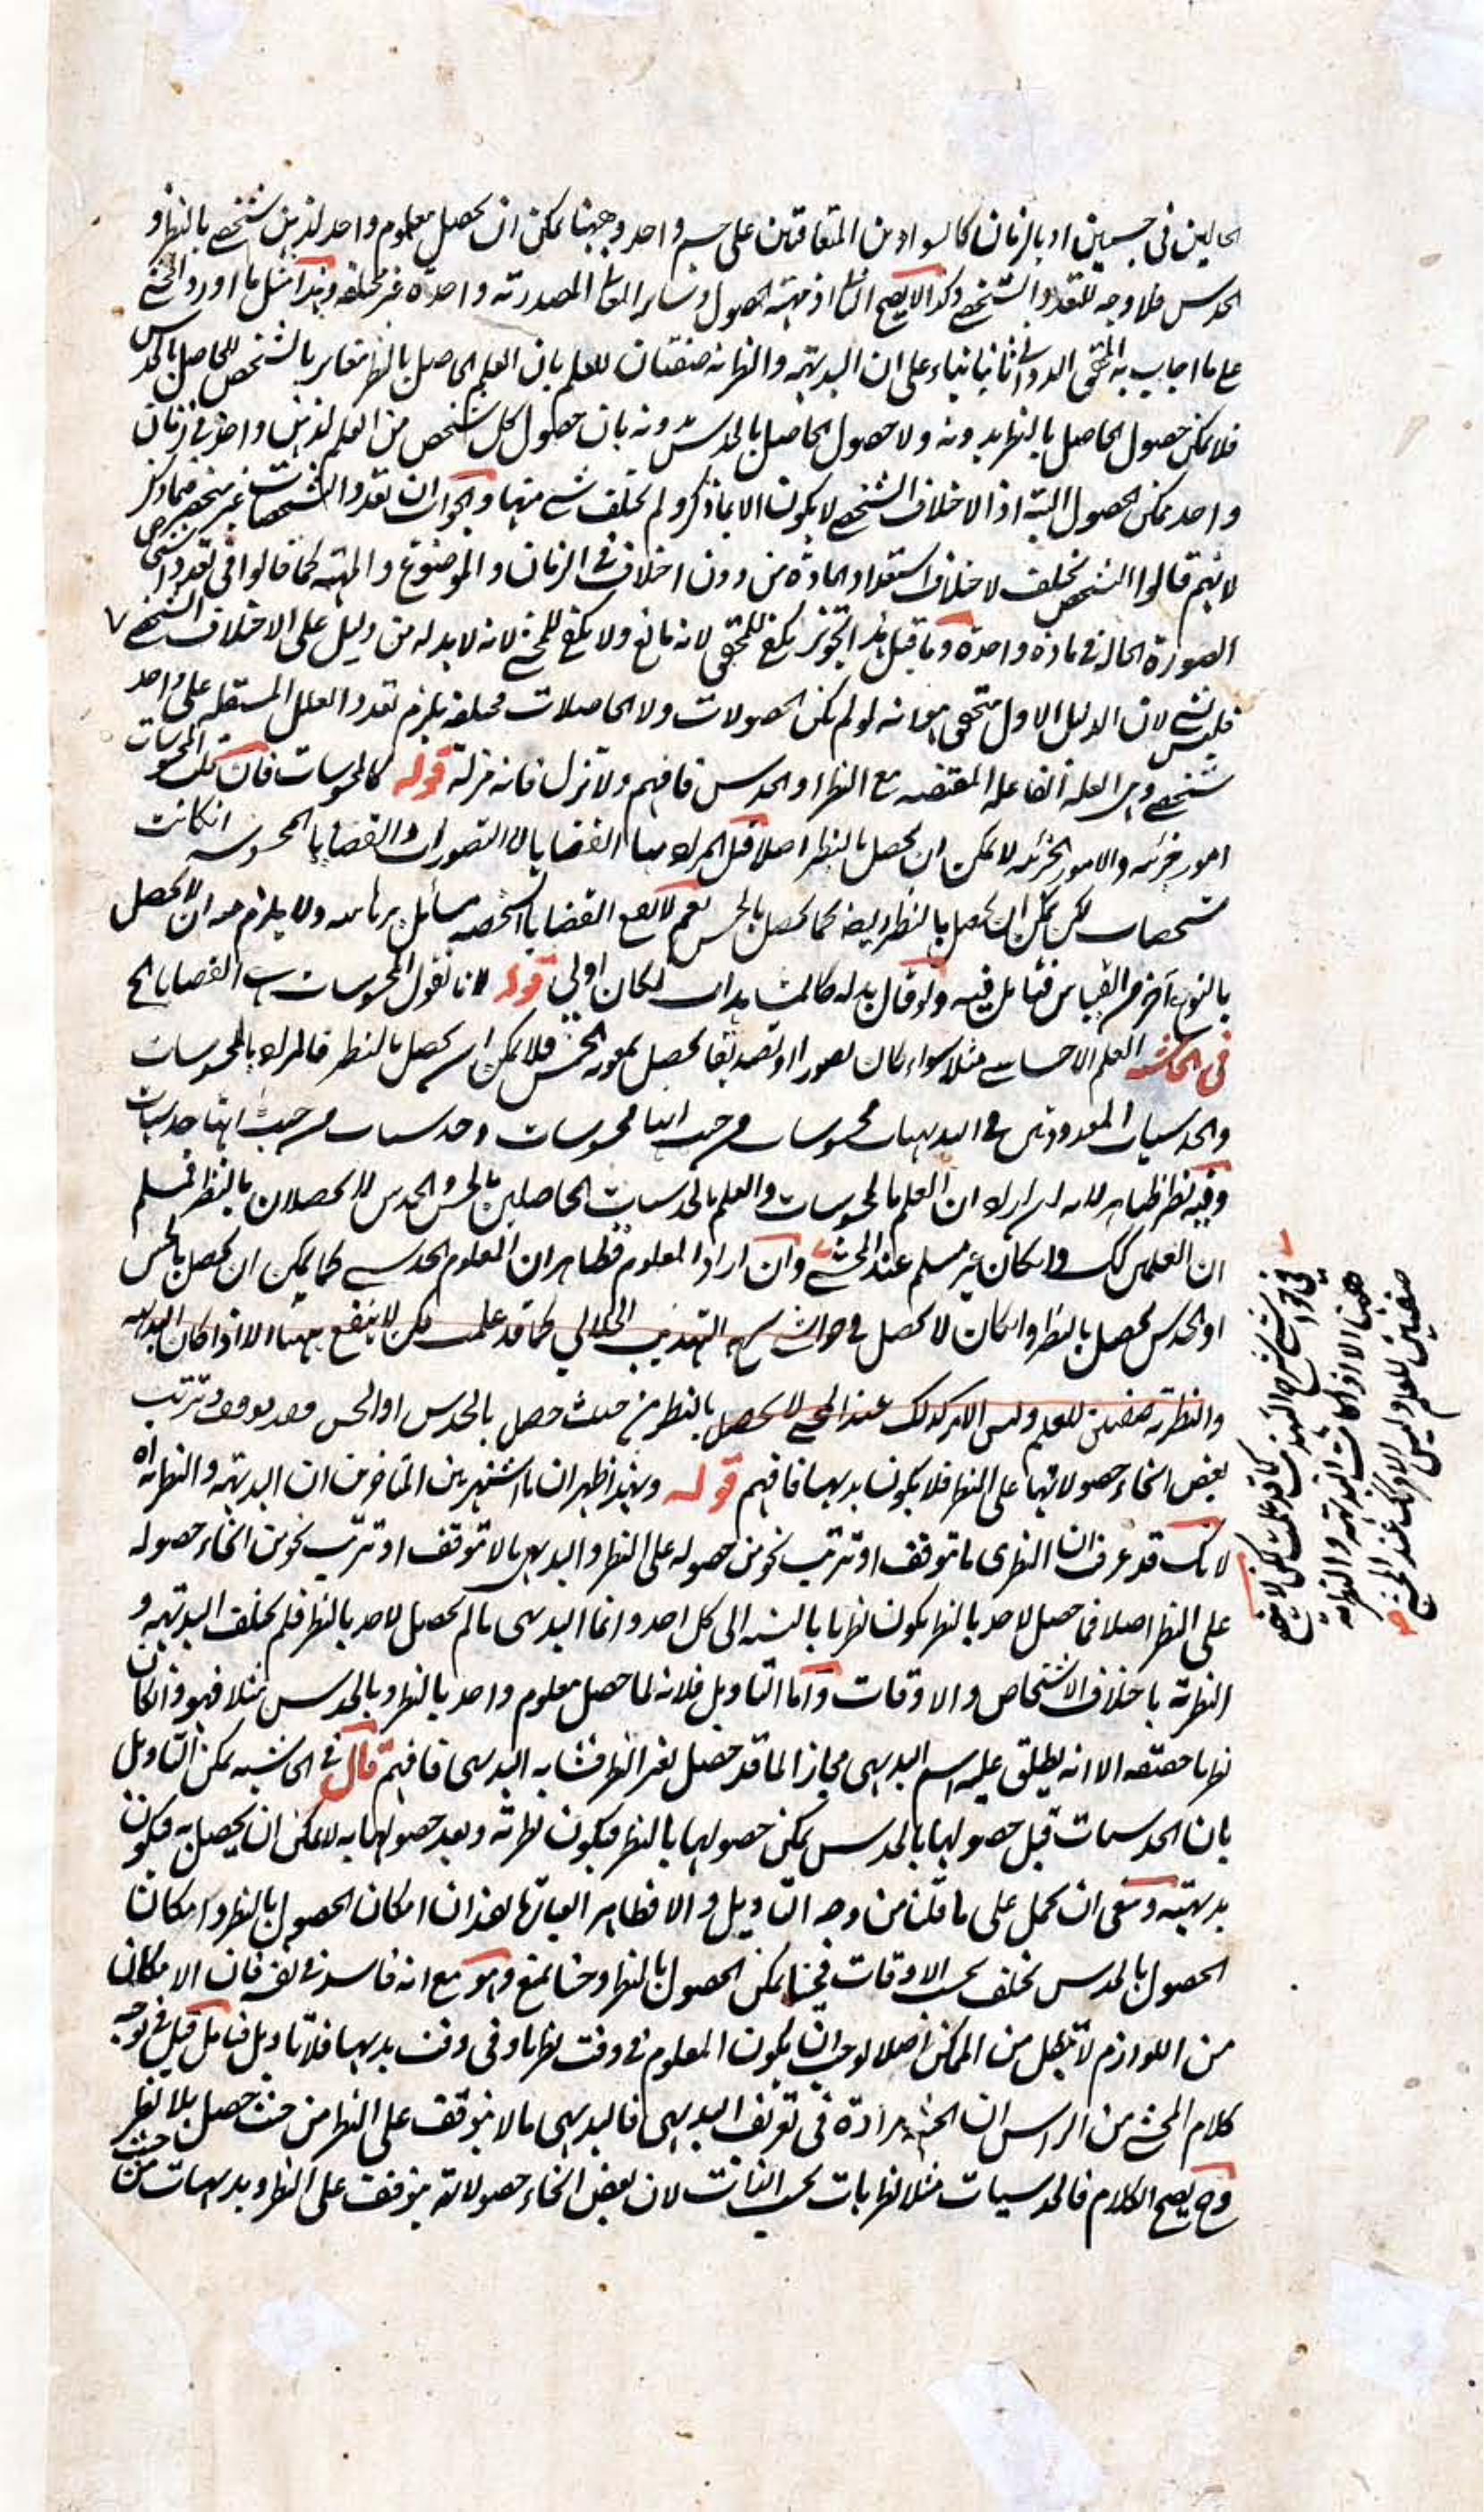 الحالين في جسمين او بالزمان كالسوادين المتعاقبين على جسم واحد وههنا يمكن ان يحصل معلوم واحد لذهن شخص بالنظر و
الحدس فلا وجه للتعدد الشخصي وكذا لا يصح اذ مهية الحصول وساير المعاني المصدرية واحدة غير مختلفة وبهذا مثل ما اورد المحشي
على ما اجاب به المحقق الدواني ثانيا بناء على ان البديهية والنظرية صفتان للعلم بان العلم الحاصل بالنظر مغاير بالشخص للحاصل بالحدس
فلا يمكن حصول الحاصل بالنظر بدونه ولا حصول الحاصل بالحدس بدونه بان حصول كل شخص من العلم لذهن واحد في زمان
واحد يمكن الحصول البتة اذ الاختلاف الشخصي لا يكون الا بما ذكر ولم يختلف شي منها والجواب ان تعدد التشخصات غير منحصر فيما ذكر
لانهم قالوا التشخص يختلف لاختلاف استعداد المادة من دون اختلاف في الزمان والموضوع والمهية كما قالوا في تعدد اشخاص
الصورة الحالة في مادة واحدة وما قيل هذا التجويز يكفي للمحقق لانه مانع ولا يكفي للمحشي لانه لا بد له من دليل على الاختلاف الشخصي
فليس بشي لان الدليل الاول متحقق وهو انه لو لم يكن الحصولات ولا الحاصلات مختلفة يلزم تعدد العلل المستقلة على واحد
شخصي وهي العلة الفاعلة المقتضية مع النظر او الحدس فافهم ولا تزل فانه مزلة قوله كالمحسوسات فان تلك المحسوسات
امور جزئية والامور الجزئية لا يمكن ان يحصل بالنظر اصلا قيل المراد منها القضايا لا التصورات والقضايا المحسوسة انكانت
شخصيات لكن يمكن ان يحصل بالنظر ايضا كما يحصل بالحس نعم لا تقع القضايا الشخصية مسائل برهانية ولا يلزم منه ان لا يحصل
بالنوع آخر من القياس فتأمل فيه ولو قال بدله كالمشاهدات لكان اولى قوله لانا نقول المحسوسات هي القضايا الخ
في الحاشية العلم الاحساسي مثلا سواء كان تصورا او تصديقا يحصل بمعونة الحس فلا يمكن ان يحصل بالنظر فالمراد بالمحسوسات
والحدسيات المعدودتين في البديهيات محسوسات من حيث انها محسوسات وحدسيات من حيث انها حدسيات
وفيه نظر ظاهر لانه ان اراد ان العلم بالمحسوسات والعلم بالحدسيات الحاصلين بالحس والحدس لا يحصلان بالنظر فمسلم
ان العلمين كك وان كان غير مسلم عند المحشي وان اراد المعلوم فظاهر ان المعلوم الحدسي كما يمكن ان يحصل بالحس
او الحدس يحصل بالنظر وان كان لا يحصل في حواشي شرح التهذيب الجلالي كما قد علمت لكن لا ينفع ههنا الا اذا كان البديهية
والنظرية صفتين للعلم وليس الامر كذلك عند المحشي لا يحصل بالنظر من حيث حصل بالحدس او الحس فقد يوقف وترتب
بعض انحاء حصولاتها على النظر فلا يكون بديهيا فافهم قوله وبهذا ظهر ان ما اشتهر بين المتأخرين ان البديهية والنظرية اه
لانك قد عرفت ان النظري ما توقف او ترتب نحو من حصوله على النظر والبديهي ما لا توقف او ترتب نحو من انحاء حصوله
على النظر اصلا فما حصل لاحد بالنظر يكون نظريا بالنسبة الى كل احد وانما البديهي ما لم يحصل لاحد بالنظر فلم يختلف البديهية و
النظرية باختلاف الاشخاص والاوقات واما التاويل فلانه لما حصل معلوم واحد بالنظر وبالحدس مثلا فهو وان كان
نظريا حقيقة الا انه يطلق عليه اسم البديهي مجازا لما قد حصل بغير النظر فشابه البديهي فافهم قال في الحاشية يمكن التاويل
بان الحدسيات قبل حصولها بالحدس يمكن حصولها بالنظر فيكون نظرية وبعد حصولها به لا يمكن ان يحصل به فيكون
بديهية وينبغي ان يحمل على ما قلنا من وجه التاويل والا فظاهر العبارة يفيد ان امكان الحصول بالنظر وامكان
الحصول بالحدس يختلف بحسب الاوقات فحينا يمكن الحصول بالنظر وحينا يمتنع وهو مع انه فاسد في نفسه فان الامكان
من اللوازم لا يبطل من الممكن اصلا يوجب ان يكون المعلوم في وقت نظريا وفي وقت بديهيا فلا تاويل فتأمل قيل في توجيه
كلام المحشي من الراس ان الحيثية مرادة في تعريف البديهي فالبديهي ما لا يتوقف على النظر من حيث حصل بلا نظر
وح يصح الكلام فالحدسيات مثلا نظريات بحسب الذات لان بعض انحاء حصولاته يتوقف على النظر وبديهيات من حيث
في حواشي شرح التهذيب كما قد علمت لكن لا ينفع
ههنا الا اذا كانت البديهية والنظرية
صفتين للعلم وليس الامر كك عند المحشي